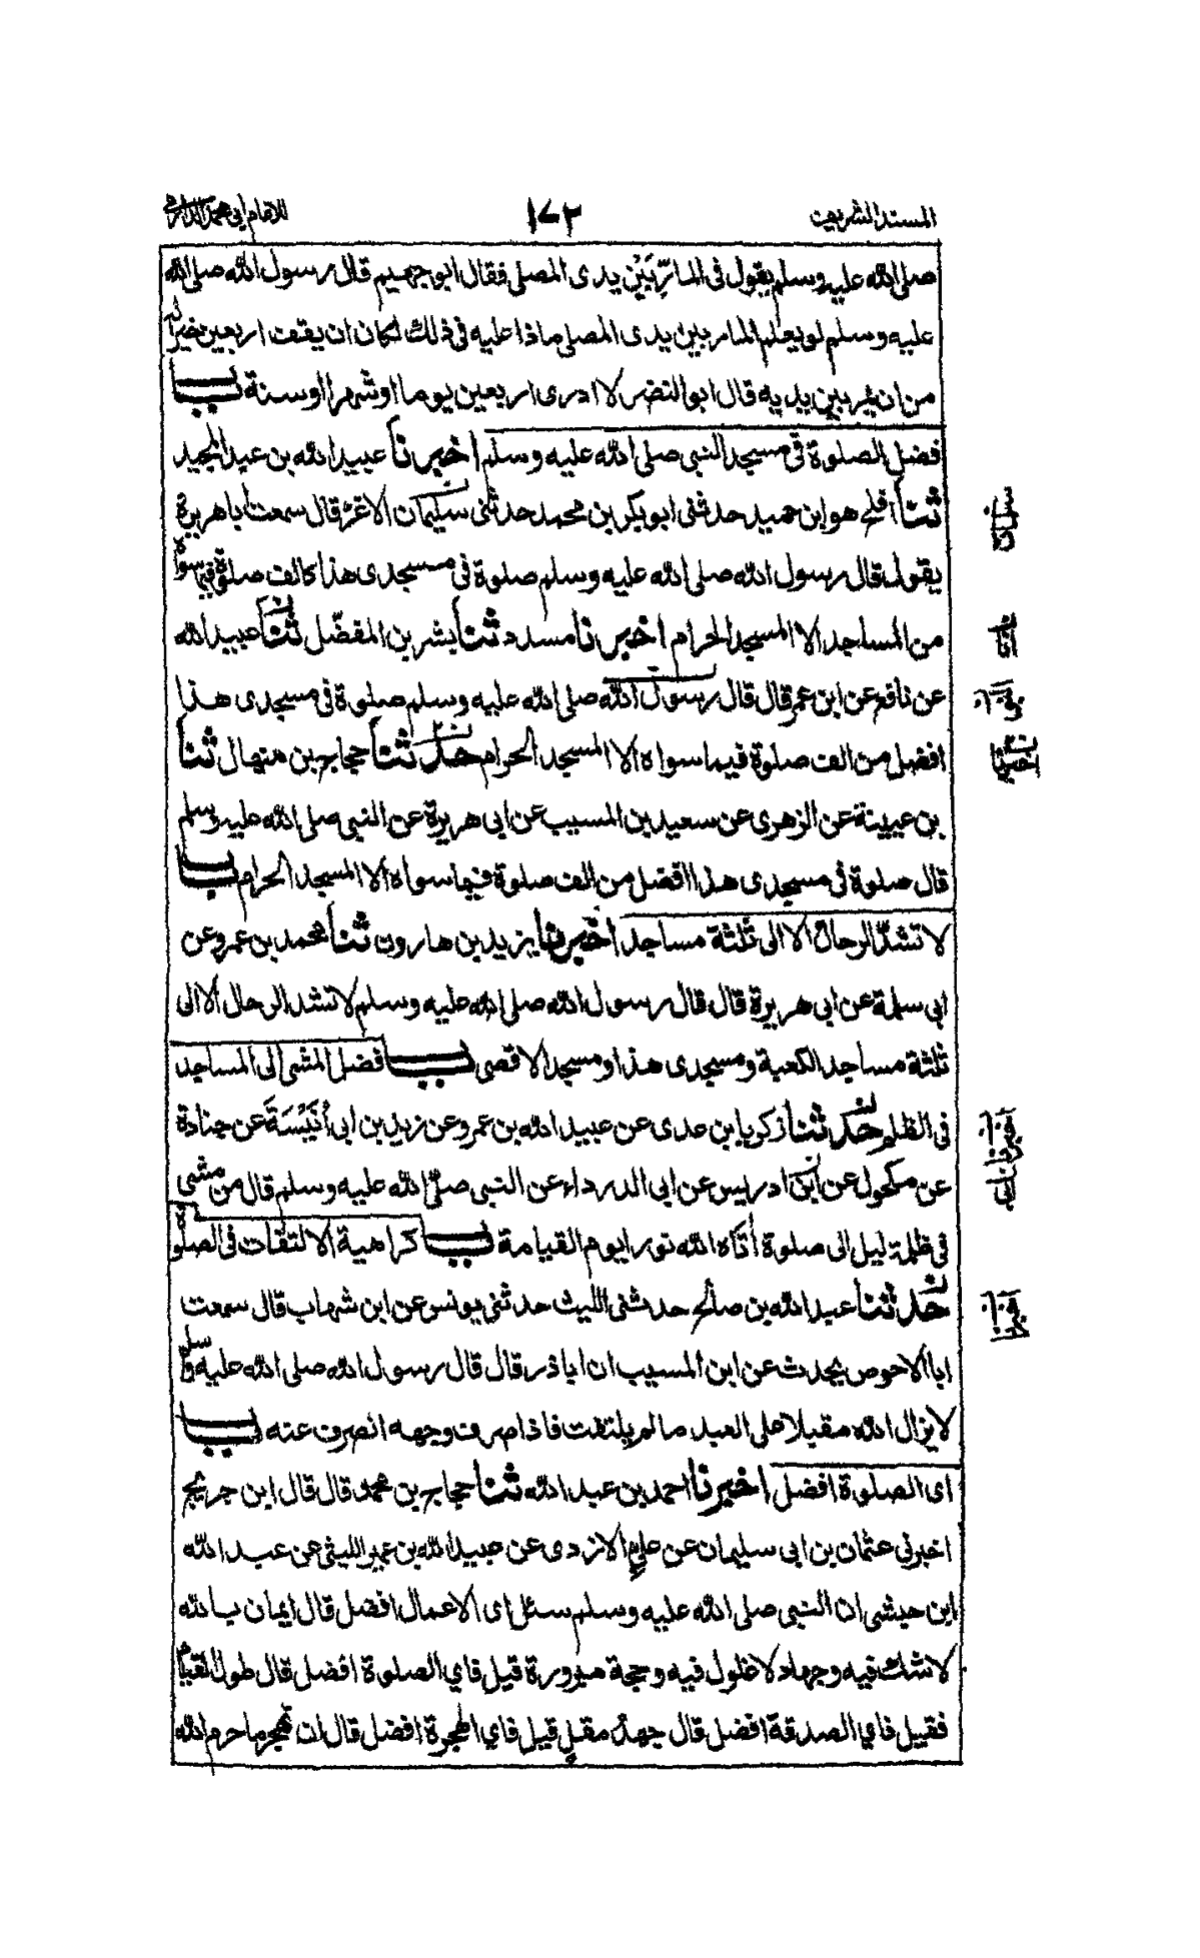 المسند الشريف
١٧٢
للامام ابی محمد الدارمی
صلى الله عليه وسلم يقول فی المارّ بَيْن يدی المصلی فقال ابو جهيم قال رسول الله صلى الله
عليه وسلم لو يعلم المار بين يدی المصلی ماذا عليه فی ذلك لكان ان يقف اربعين خير اله
من ان يمر بين يديه قال ابو النضر لا ادری اربعين يوما او شهرا او سنة باب
فضل الصلوة فی مسجد النبی صلى الله عليه وسلم اخبرنا عبيد الله بن عبد المجيد
ثنا افلح هو ابن حميد حدثنی ابو بكر بن محمد حدثنی سليمان الاغرّ قال سمعت اباهريرة
يقول قال رسول الله صلى الله عليه وسلم صلوة فی مسجدی هذا كالف صلوة فيما سواه
من المساجد الا المسجد الحرام اخبرنا مسدد ثنا بشر بن المفضّل ثنا عبيد الله
عن نافع عن ابن عمر قال قال رسول الله صلى الله عليه وسلم صلوة فی مسجدی هذا
افضل من الف صلوة فيما سواه الا المسجد الحرام حدثنا حجاج بن منهال ثنا
بن عيينة عن الزهری عن سعيد بن المسيب عن ابی هريرة عن النبی صلى الله عليه وسلم
قال صلوة فی مسجدی هذا افضل من الف صلوة فيما سواه الا المسجد الحرام باب
لا تشدّ الرحال الا الی ثلثة مساجد اخبرنا يزيد بن هارون ثنا محمد بن عمرو عن
ابی سلمة عن ابی هريرة قال قال رسول الله صلى الله عليه وسلم لا تشد الرحال الا الی
ثلثة مساجد الكعبة ومسجدی هذا ومسجد الاقصی باب فضل المشی الی المساجد
فی الظلم حدثنا زكريا بن عدی عن عبيد الله بن عمرو عن زيد بن ابی أُنَيْسَةَ عن جنادة
عن مكحول عن ابی ادريس عن ابی الدرداء عن النبی صلى الله عليه وسلم قال من مشی
فی ظلمة ليل الی صلوة أتاه الله نورا يوم القيامة باب كراهية الالتفات فی الصلوة
حدثنا عبد الله بن صالح حدثنی الليث حدثنی يونس عن ابن شهاب قال سمعت
ابا الاحوص يحدث عن ابن المسيب ان اباذر قال قال رسول الله صلى الله عليه وسلم
لا يزال الله مقبلا علی العبد مالم يلتفت فاذا صرف وجهه انصرف عنه باب
ای الصلوة افضل اخبرنا احمد بن عبد الله ثنا حجاج بن محمد قال قال ابن جريج
اخبرنی عثمان بن ابی سليمان عن علیٍ الازدی عن عبيد الله بن عمير الليثی عن عبد الله
ابن حبشی ان النبی صلى الله عليه وسلم سئل ای الاعمال افضل قال ايمان بالله
لا شك فيه وجهاد لا غلول فيه وحجة مبرورة قيل فای الصلوة افضل قال طول القيام
فقيل فای الصدقة افضل قال جهد مقلٍ قيل فای الهجرة افضل قال ان تهجر ما حرم الله
سلمان